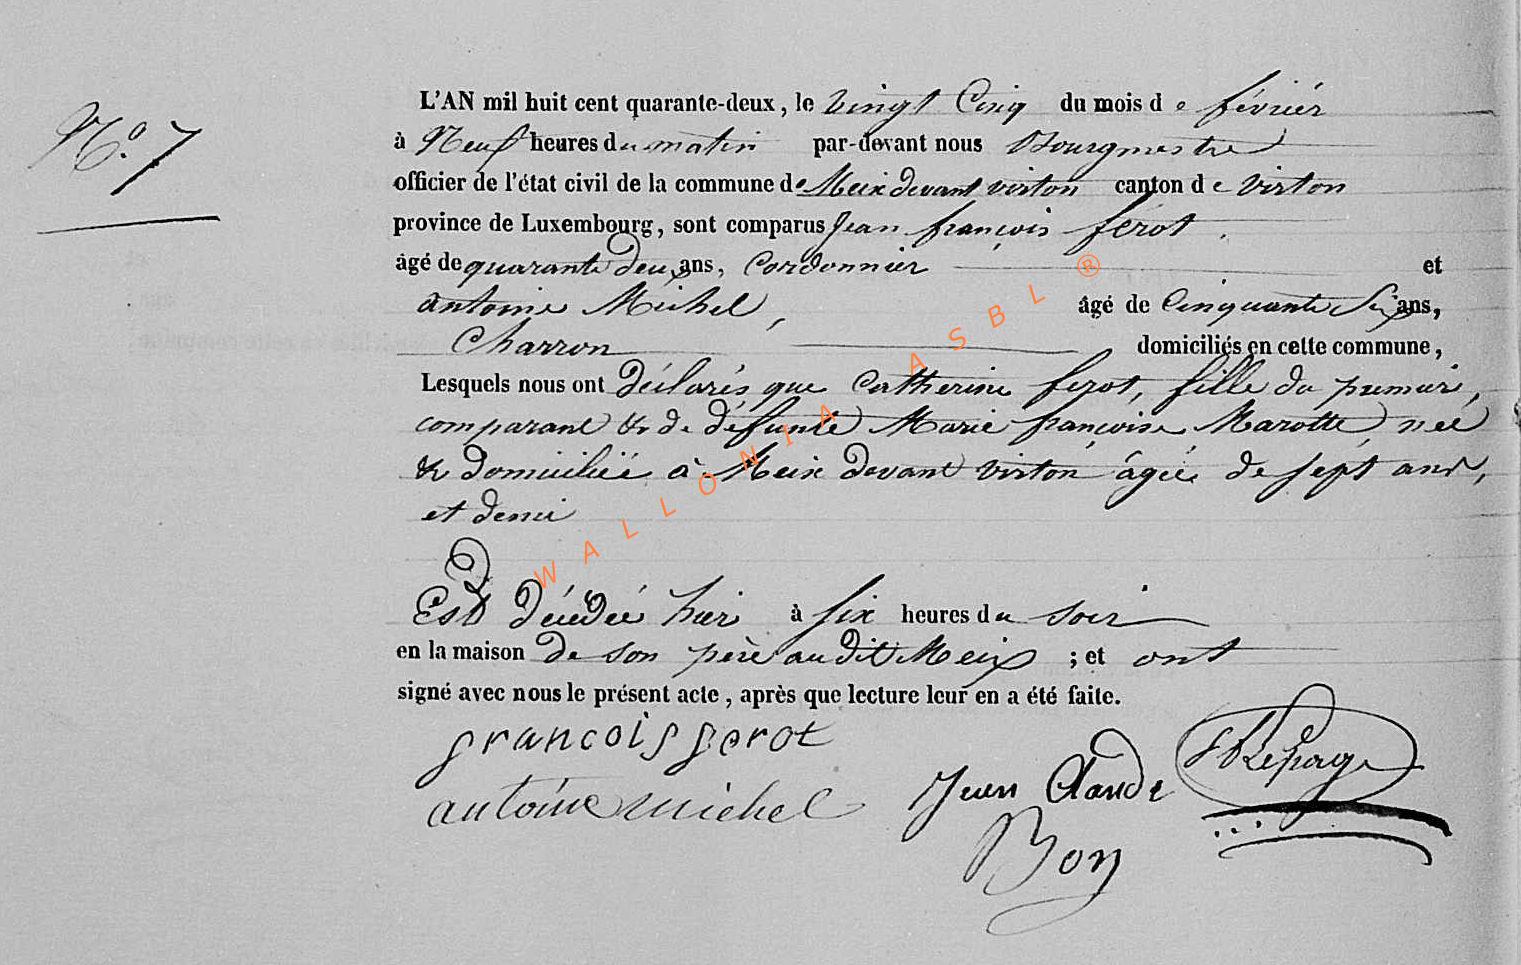 N.° 7
L'AN mil huit cent quarante-deux, le vingt Cinq du mois de février
à Neuf heures du matin par-devant nous Bourgmestre
officier de l'état civil de la commune de Meix devant virton canton de virton
province de Luxembourg, sont comparus Jean françois ferot.
âgé de quarante deux ans, Cordonnier et
antoine Michel, âgé de Cinquante Six ans,
Charron domiciliés en cette commune,
Lesquels nous ont déclarés que Catherine ferot, fille du premier,
comparant & de défunte Marie françoise Marotte, née
& domiciliée à Meix devant virton âgée de sept ans,
et demi
Est décédée hier à six heures du soir
en la maison de son père au dit Meix ; et ont
signé avec nous le présent acte, après que lecture leur en a été faite.
francois ferot
antoine michel
Jean Claude
Bon
Lepage
WALLONIA ASBL ®